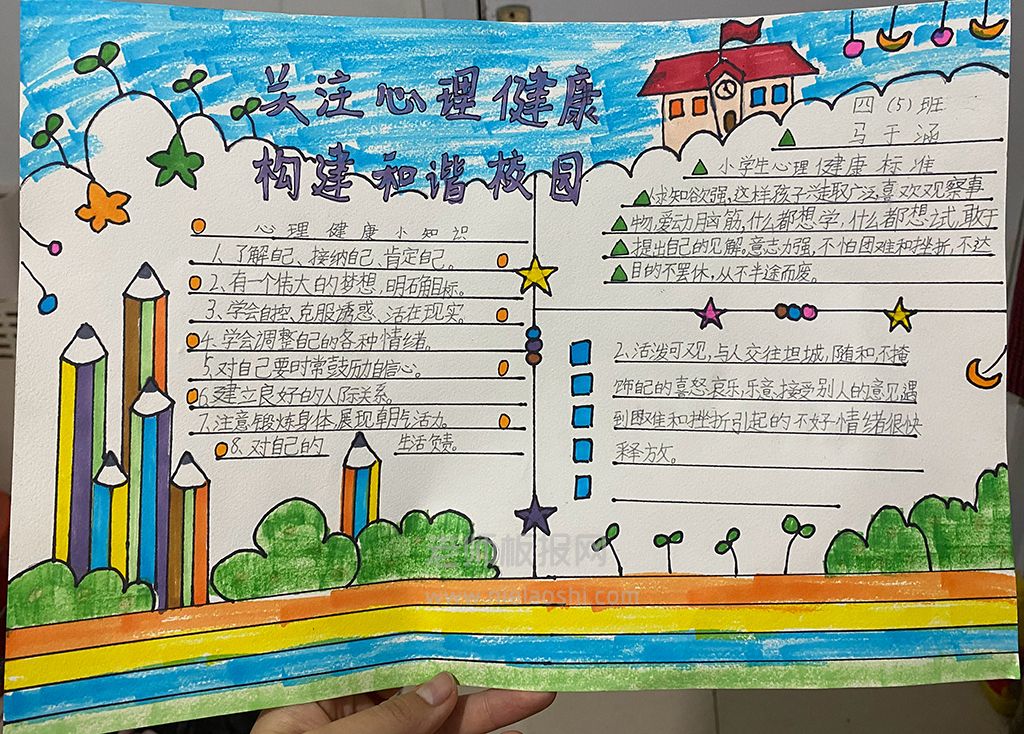 关注心理健康
构建和谐校园
四(5)班
马于涵
心理健康小知识
1、了解自己、接纳自己、肯定自己。
2、有一个伟大的梦想,明确目标。
3、学会自控、克服诱惑、活在现实。
4、学会调整自己的各种情绪。
5、对自己要时常鼓励自信心。
6、建立良好的人际关系。
7、注意锻炼身体,展现朝气活力。
8、对自己的 生活负责。
小学生心理健康标准
1、求知欲强,这样孩子涉取广泛,喜欢观察事
物,爱动脑筋,什么都想学,什么都想试,敢于
提出自己的见解。意志力强,不怕困难和挫折,不达
目的不罢休,从不半途而废。
2、活泼可观,与人交往坦城,随和不掩
饰自己的喜怒哀乐,乐意接受别人的意见遇
到困难和挫折引起的不好情绪很快
释放。
老师板报网
www.mslaoshi.com